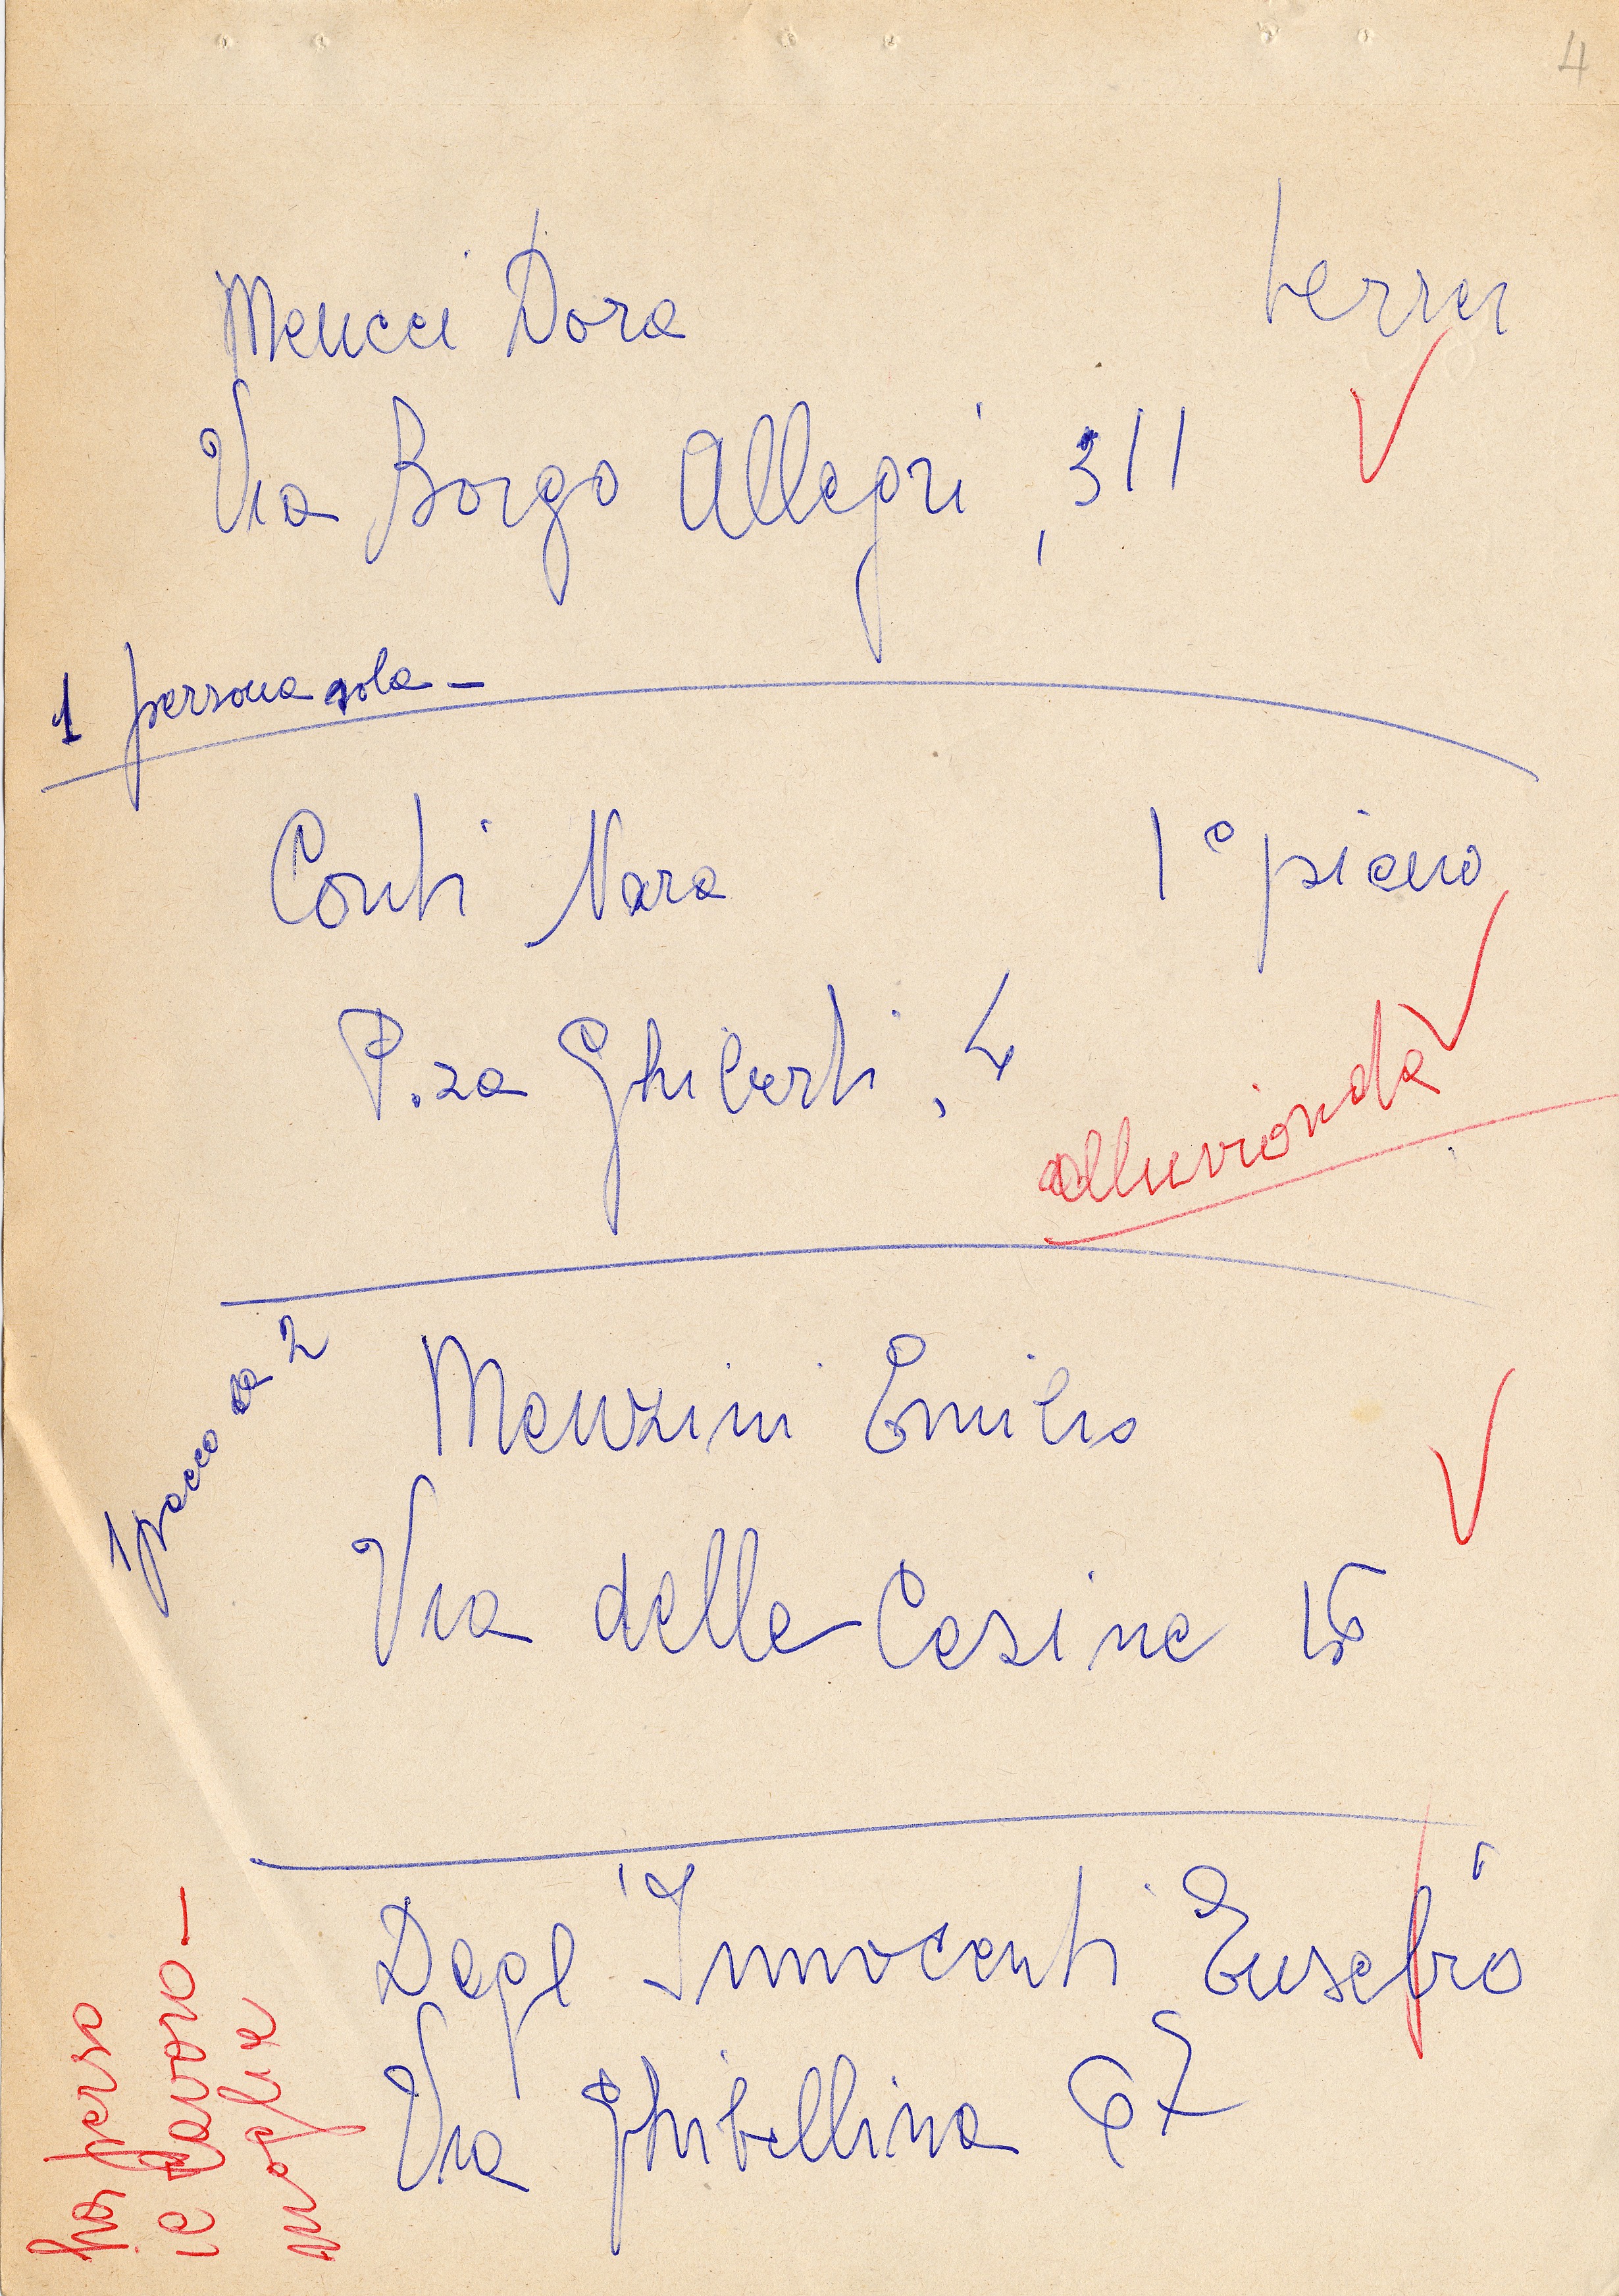 4
Meucci Dora terreno
Via Borgo Allegri, 311
1 persona sola -
Conti Nara 1° piano
P.za Ghiberti, 4
alluvionata
1 pacco da 2
Menzini Emilio
Via delle Casine 15
Degl'Innocenti Eusebio
Via Ghibellina 67
ha perso
il lavoro -
moglie